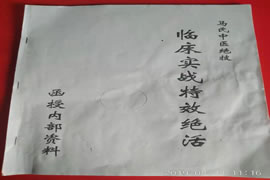 马氏中医绝技
临床实战特效绝活
函授内部资料